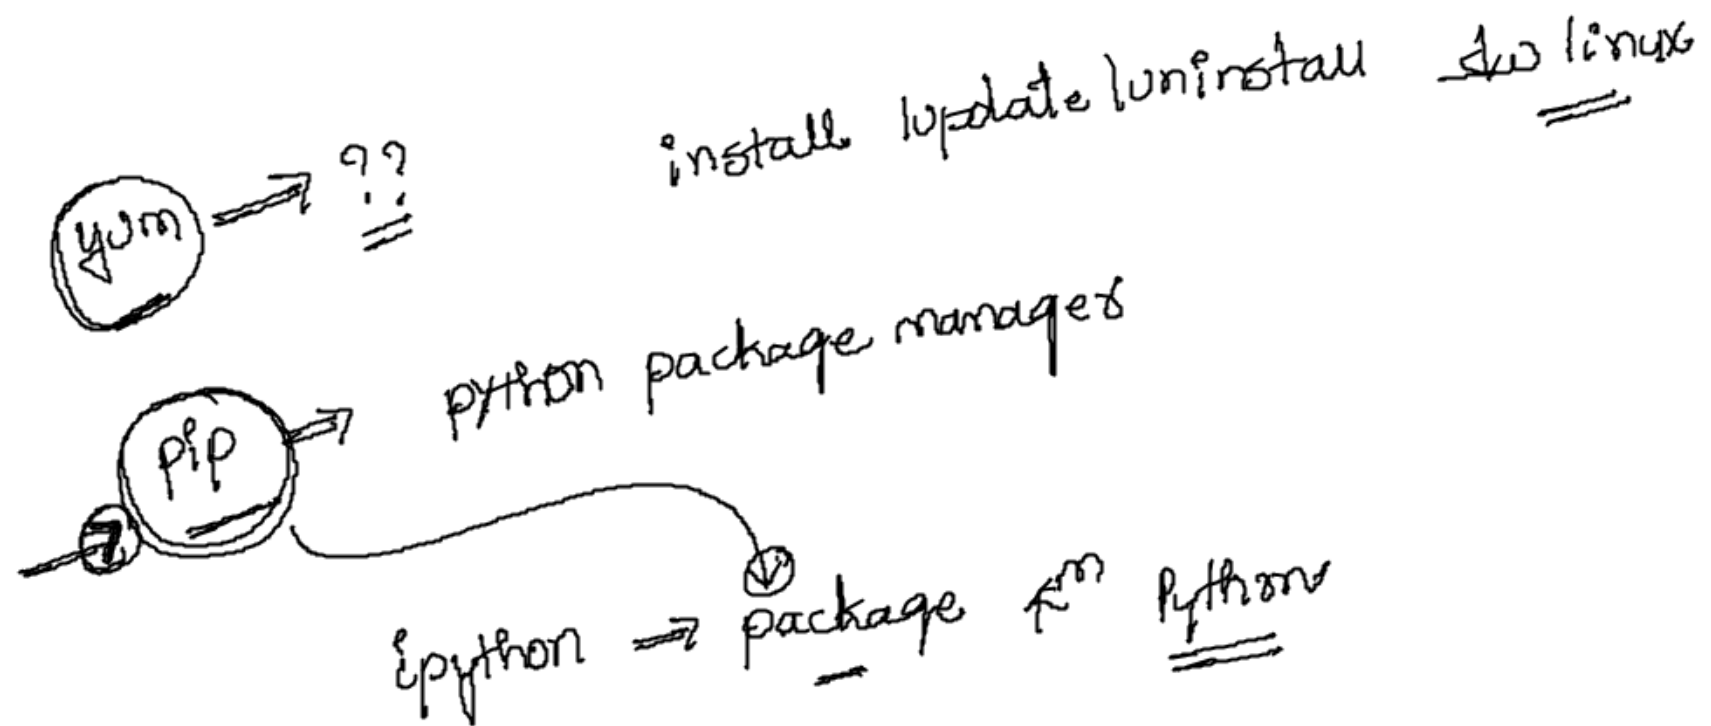 yum ?? install /update /uninstall s/w linux
pip python package manager
ipython package Python